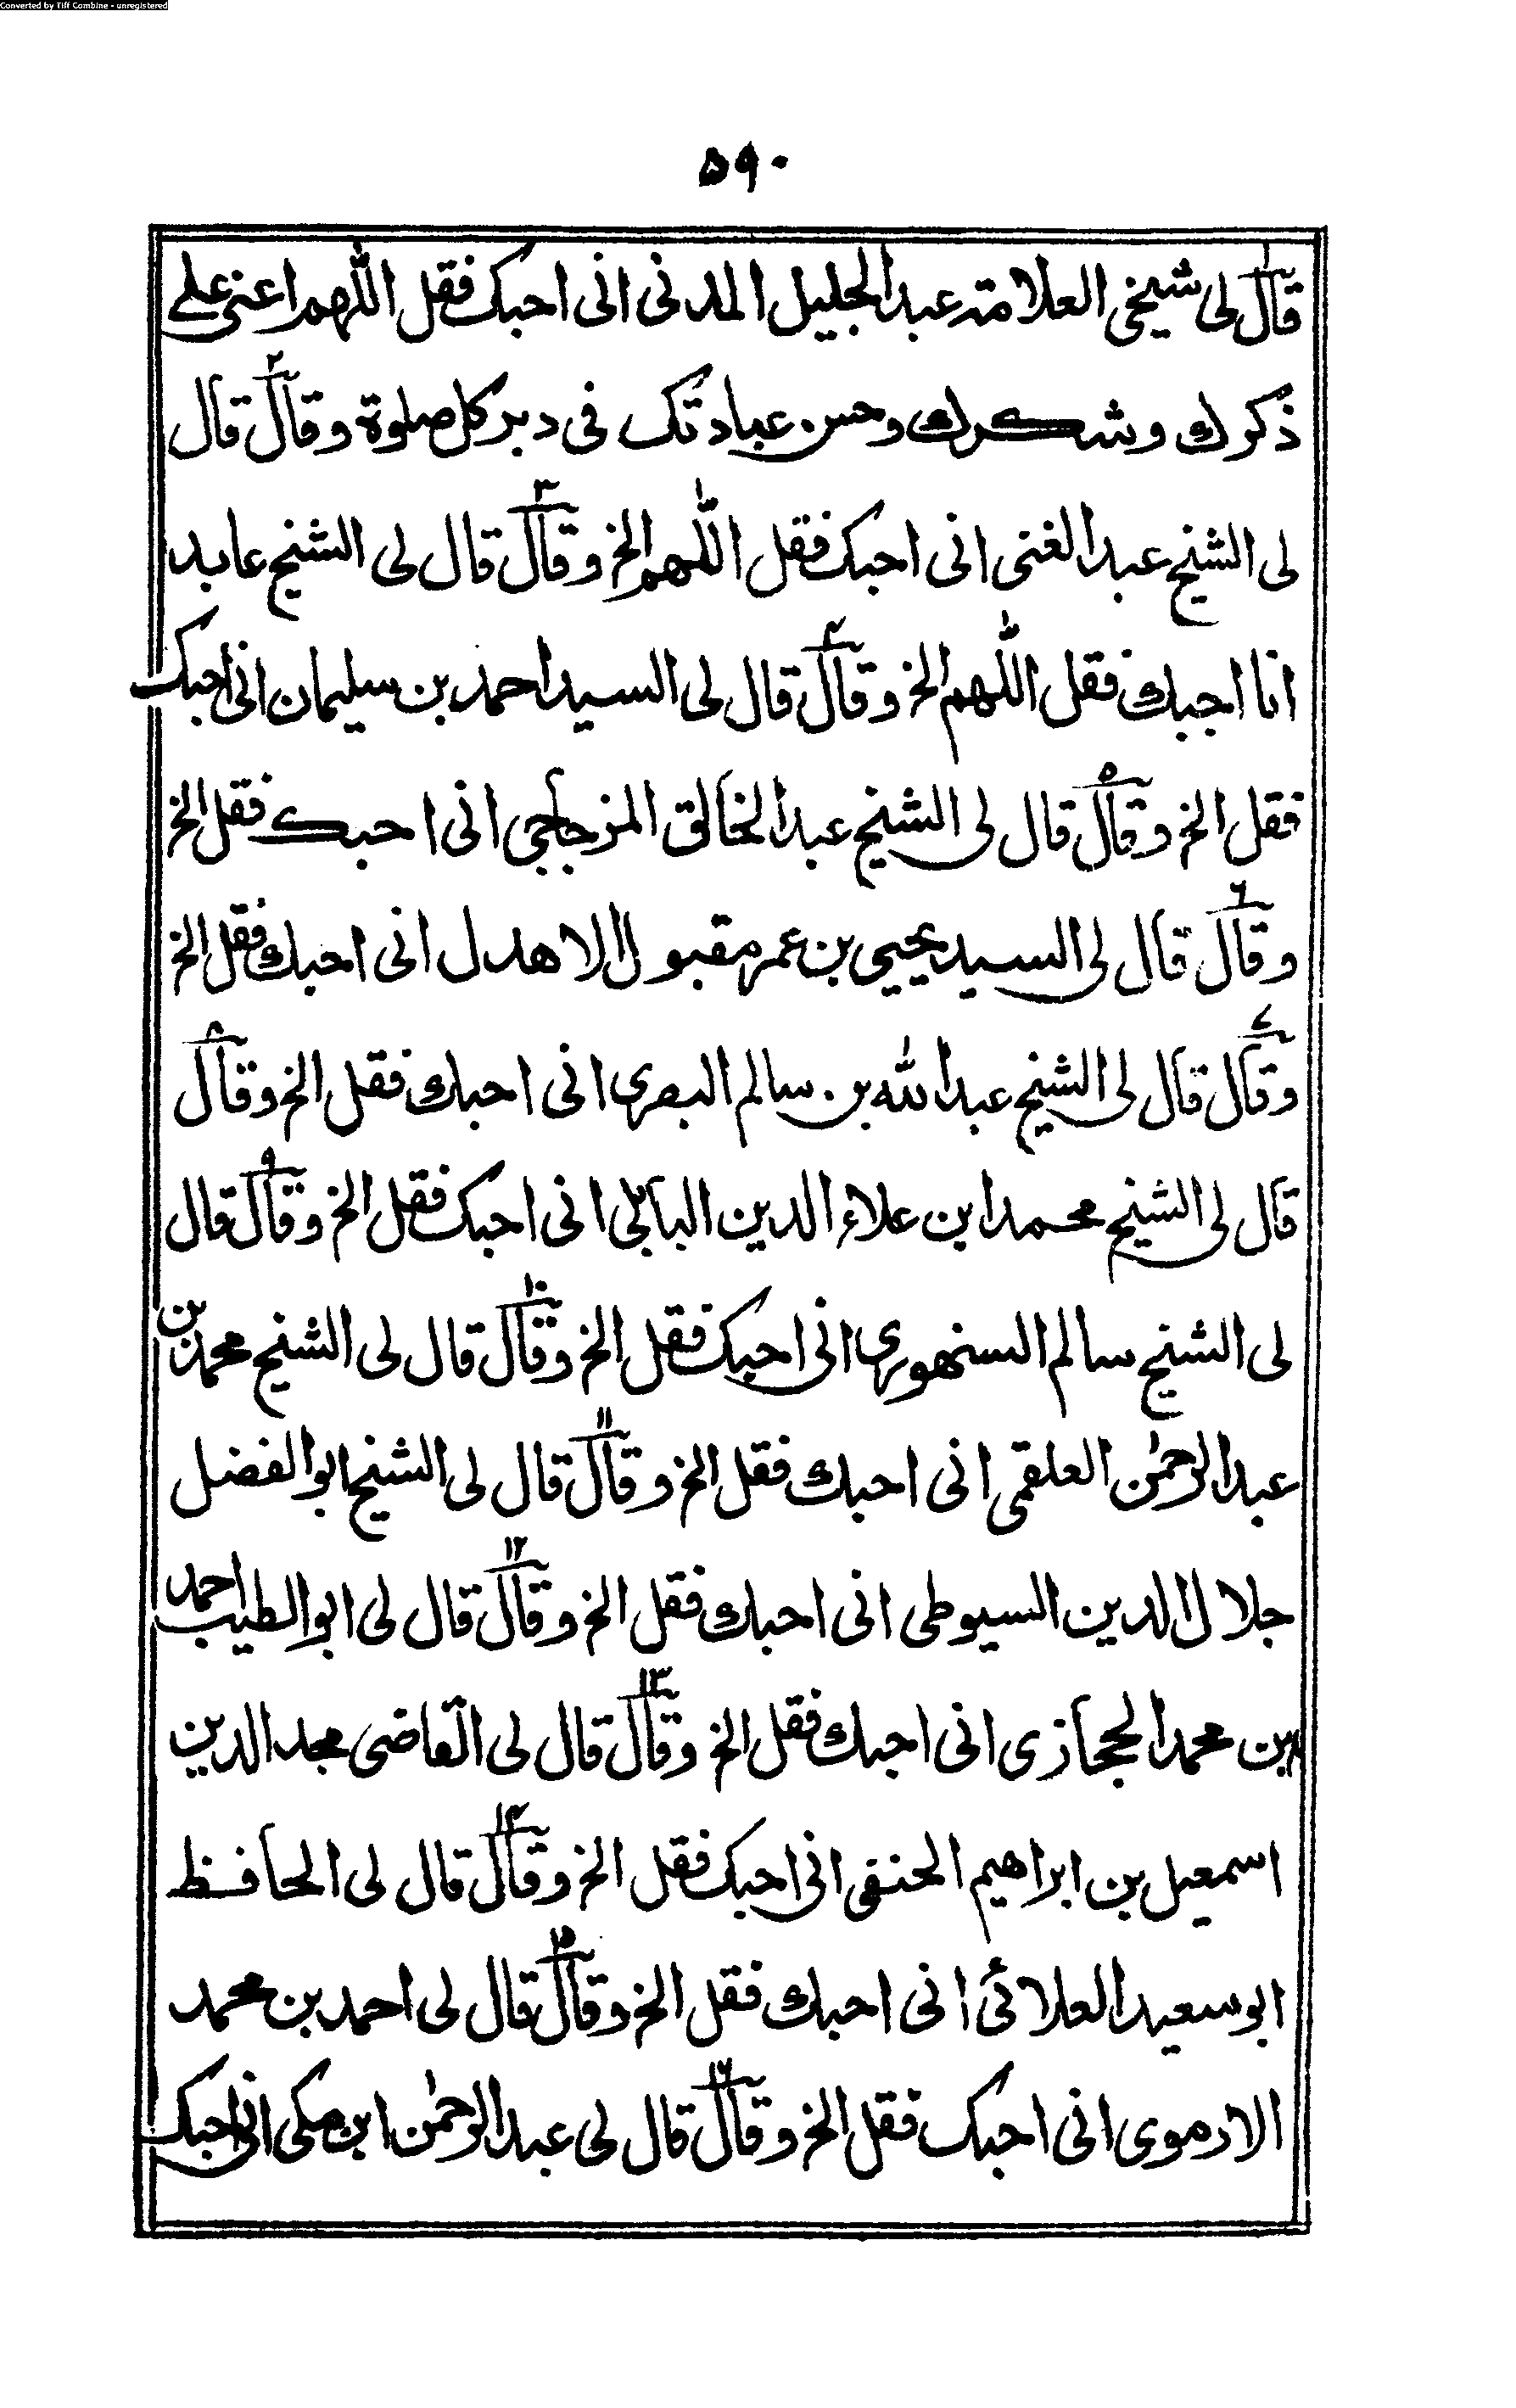 Converted by Tiff Combine - unregistered
۵۹۰
قال۱ لی شیخی العلامة عبد الجلیل المدنی انی احبک فقل اللّٰهم اعنی علے
ذکرك وشکرك وحسن عبادتک فی دبر کل صلوة وقال۲ قال
لی الشیخ عبد الغنی انی احبک فقل اللّٰهم الخ وقال۳ قال لی الشیخ عابد
انا احبك فقل اللّٰهم الخ وقال۴ قال لی السید احمد بن سلیمان انی احبک
فقل الخ وقال۵ قال لی الشیخ عبد الخالق المزجاجی انی احبك فقل الخ
وقال۶ قال لی السید یحیی بن عمر مقبول الاهدل انی احبك فقل الخ
وقال۷ قال لی الشیخ عبد الله بن سالم البصری انی احبك فقل الخ وقال۸
قال لی الشیخ محمد ابن علاء الدین البابلی انی احبک فقل الخ وقال۹ قال
لی الشیخ سالم السنهوری انی احبک فقل الخ وقال۱۰ قال لی الشیخ محمد بن
عبد الرحمٰن العلقمی انی احبك فقل الخ وقال۱۱ قال لی الشیخ ابو الفضل
جلال الدین السیوطی انی احبك فقل الخ وقال۱۲ قال لی ابو الطیب احمد
بن محمد الحجازی انی احبك فقل الخ وقال۱۳ قال لی القاضی مجد الدین
اسمعیل بن ابراهیم الحنفی انی احبک فقل الخ وقال۱۴ قال لی الحافظ
ابو سعید العلائی انی احبك فقل الخ وقال۱۵ قال لی احمد بن محمد
الارموی انی احبک فقل الخ وقال۱۶ قال لی عبد الرحمٰن ابن مکی انی احبک